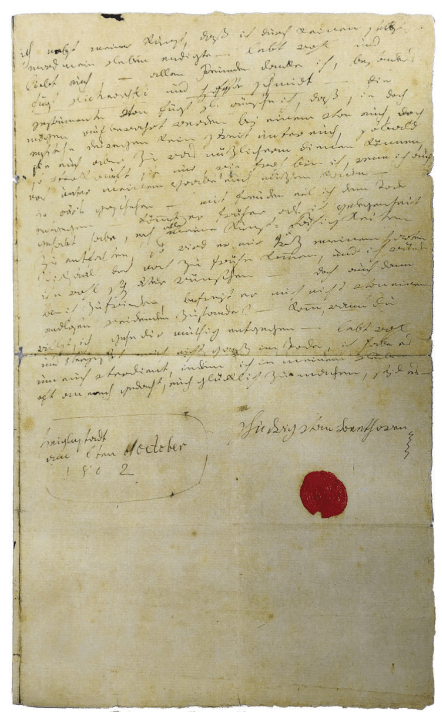 ich nebst meiner Kunst, daß ich durch keinen selbst-
mord mein Leben endigte – lebt wohl und
liebt euch – allen Freunden danke ich, besonders
fürst Lichnowski und Professor schmidt – die
Instrumente von fürst L. wünsche ich, daß sie doch
mögen aufbewahrt werden bei einem von euch, doch
entstehe deswegen kein streit unter euch, sobald
sie euch aber zu was nüzlicherm dienen können,
so verkauft sie nur, wie froh bin ich, wenn ich auch
noch unter meinem Grabe euch nüzen kann –
so wärs geschehen – mit freuden eil ich dem Tode
entgegen – kömmt er früher als ich gelegenheit
gehabt habe, noch alle meine Kunst-Fähigkeiten
zu entfalten, so wird er mir troz meinem harten
Schicksal doch noch zu frühe kommen, und ich würde
ihn wohl später wünschen – doch auch dann
bin ich zufrieden, befreyt er mich nicht von einem
endlosen leidenden Zustande? – komm, wann du
willst, ich gehe dir muthig entgegen – lebt wohl
und vergeßt mich nicht ganz im Tode, ich habe es
um euch verdient, indem ich in meinem Leben
oft an euch gedacht, euch glücklich zu machen, seyd es –
Heiglnstadt
am 6ten October
1802
Ludwig van Beethoven